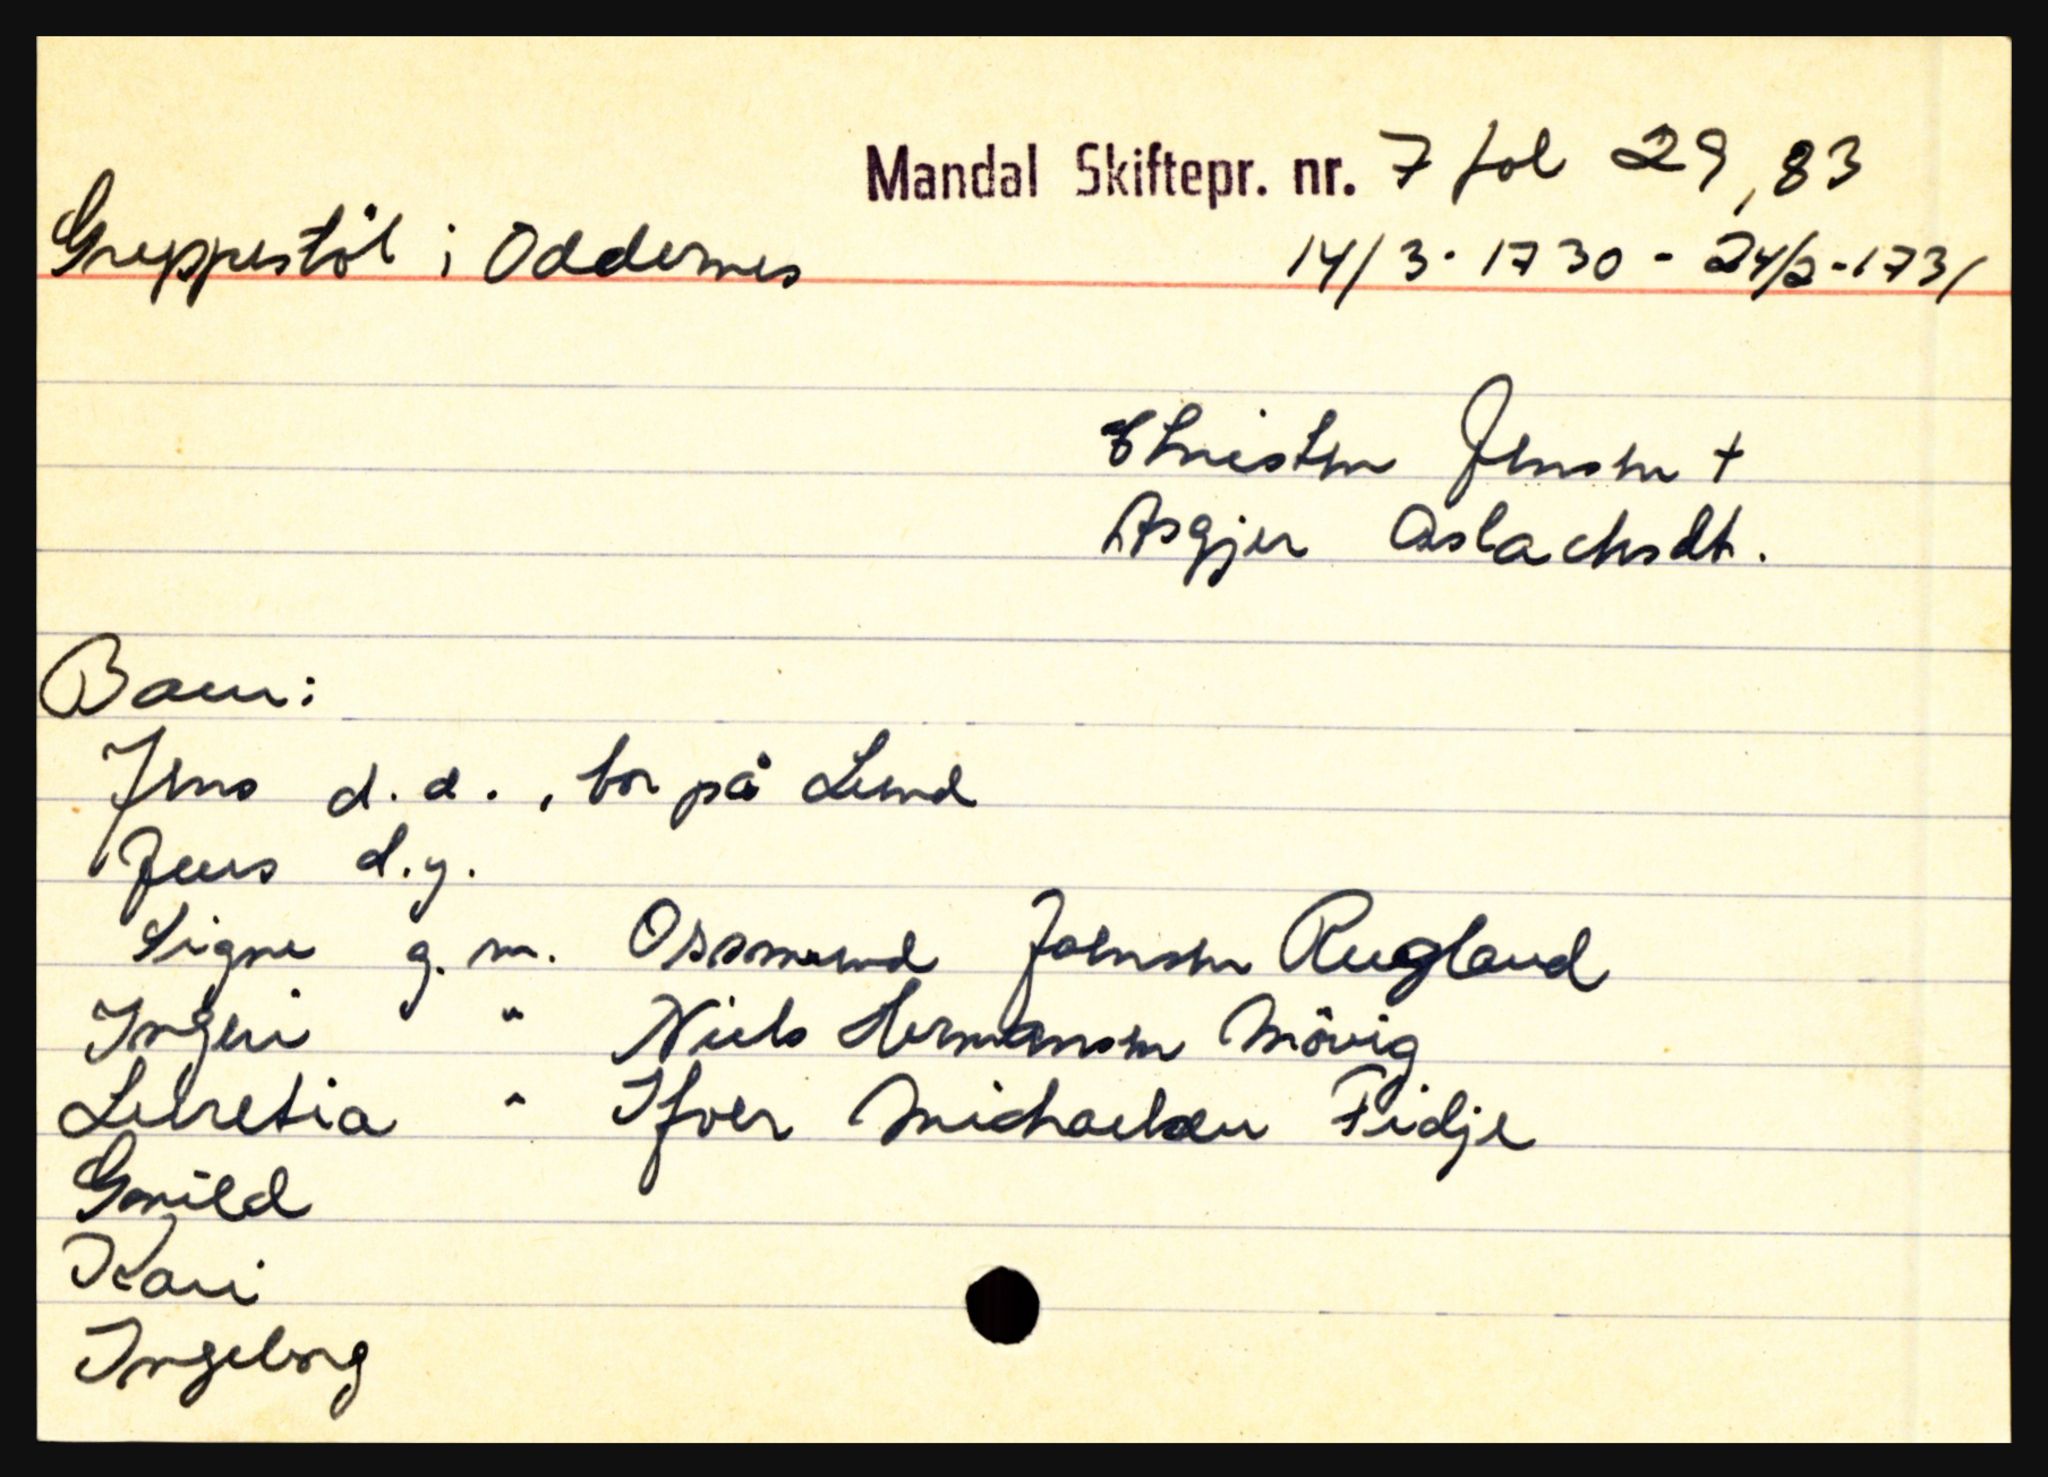 Mandal Skiftepr. nr. 7 fol 29, 83
Greppestøl i Oddernes 14/3-1730 - 24/2-1731
Christen Jensen +
Asgjer Aslachsdt.
Barn:
Jens d.e., bor på Lund
Jens d.y.
Signe g.m. Ossmund Joensen Rugland
Ingeri " Niels Hermansen Møvig
Lucretia " Ifver Michaelsen Fidje
Gonild
Kari
Ingeborg